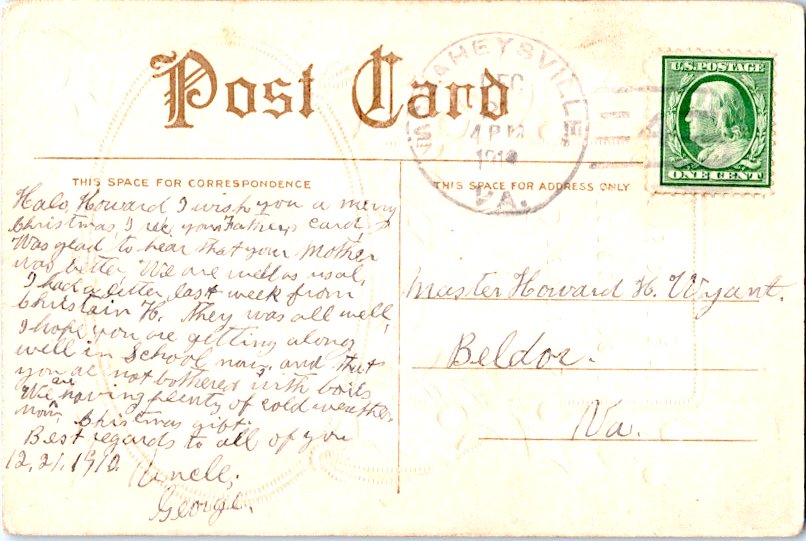 Post Card
McGAHEYSVILLE
DEC
4 PM
1910
VA.
U.S. POSTAGE
ONE CENT
THIS SPACE FOR CORRESPONDENCE
THIS SPACE FOR ADDRESS ONLY
Halo, Howard I wish you a merry
Christmas, I rec your Fathers card,
Was glad to hear that your Mother
was better, We are well as usal,
I had a letter last week from
Christain H. they was all well,
I hope you are getting along
well in School now, and that
you ae not bothered with boils
We are having plenty of cold weather
now, Christmas gift.
Best regards to all of you
12, 21, 1910
Uncle,
George.
Master Howard H. Wyant.
Beldor.
Va.